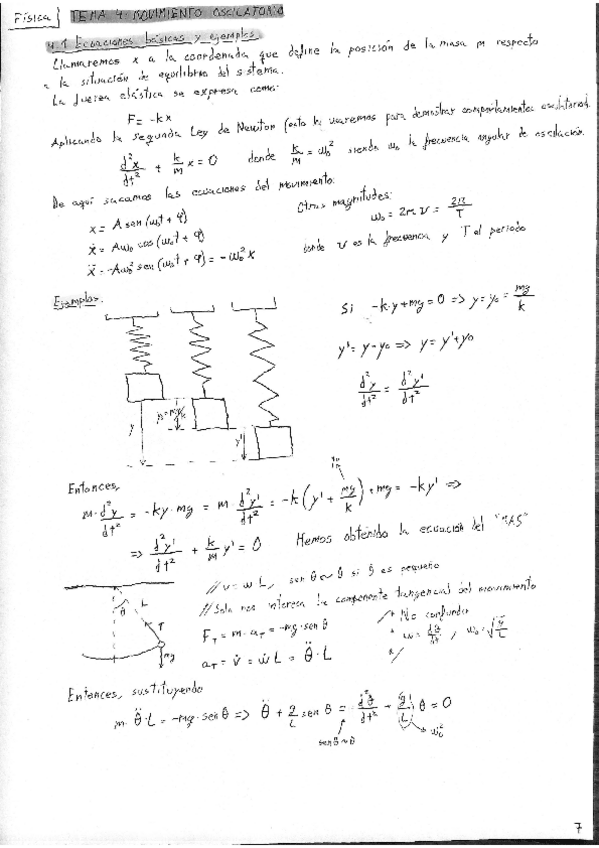 Física
TEMA 4: MOVIMIENTO OSCILATORIO
4.1 Ecuaciones básicas y ejemplos
Llamaremos x a la coordenada que define la posición de la masa m respecto
a la situación de equilibrio del sistema.
La fuerza elástica se expresa como:
F = -kx
Aplicando la segunda Ley de Newton (esto lo usaremos para demostrar comportamientos oscilatorios)
d²x/dt² + k/m x = 0 donde k/m = ω₀² siendo ω₀ la frecuencia angular de oscilación.
De aquí sacamos las ecuaciones del movimiento:
x = A sen(ω₀t + φ)
ẋ = Aω₀ cos(ω₀t + φ)
ẍ = -Aω₀² sen(ω₀t + φ) = -ω₀² x
Otras magnitudes:
ω₀ = 2πν = 2π/T
donde ν es la frecuencia y T el periodo
Ejemplos:
y
y₀=mg/k
y'
Si -k·y+mg=0 => y=y₀= mg/k
y'=y-y₀ => y=y'+y₀
d²y/dt² = d²y'/dt²
Entonces,
y₀
m·d²y/dt² = -ky·mg = m d²y'/dt² = -k(y' + mg/k) + mg = -ky' =>
=> d²y'/dt² + k/m y' = 0 Hemos obtenido la ecuación del "MAS"
θ
L
T
mg
//v=ωL, senθ≈θ si θ es pequeño
//Solo nos interesa la componente tangencial del movimiento
F_T = m·a_T = -mg·senθ
a_T = v̇ = ω̇L = θ̈·L
* No confundir
* ω = dθ/dt, ω₀=√(g/L)
Entonces, sustituyendo
m·θ̈·L = -mg·senθ => θ̈ + g/L senθ = d²θ/dt² + g/L θ = 0
senθ≈θ
ω₀²
7